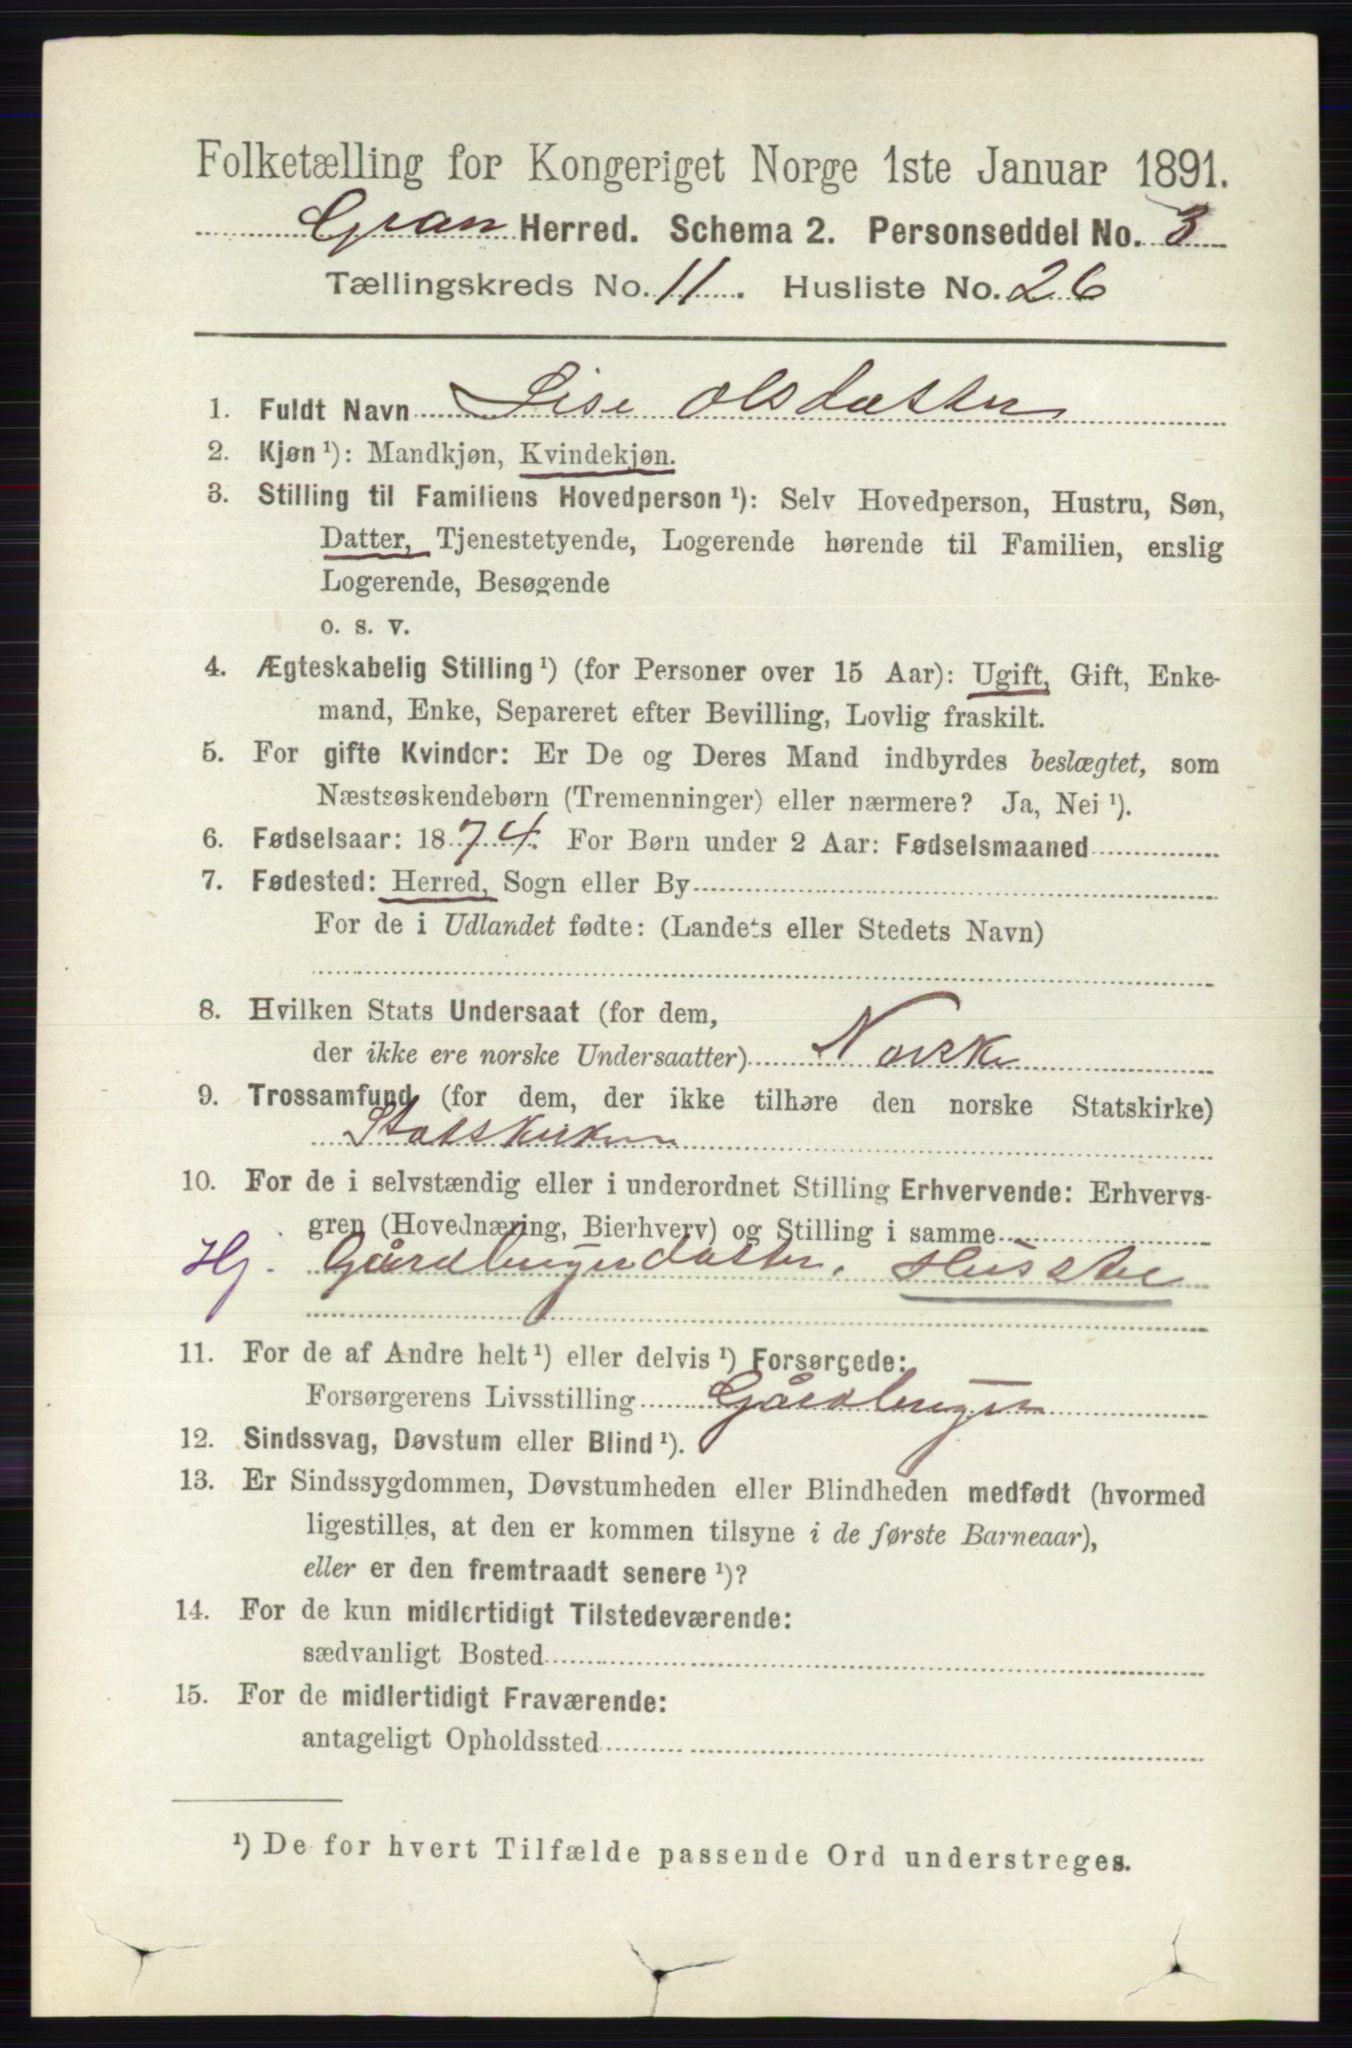 Folketælling for Kongeriget Norge 1ste Januar 1891.
Gran Herred. Schema 2. Personseddel No. 3
Tællingskreds No. 11. Husliste No. 26
1. Fuldt Navn Lise Olsdatter
2. Kjøn ¹): Mandkjøn, Kvindekjøn.
3. Stilling til Familiens Hovedperson ¹): Selv Hovedperson, Hustru, Søn,
Datter, Tjenestetyende, Logerende hørende til Familien, enslig
Logerende, Besøgende
o. s. v.
4. Ægteskabelig Stilling ¹) (for Personer over 15 Aar): Ugift, Gift, Enke-
mand, Enke, Separeret efter Bevilling, Lovlig fraskilt.
5. For gifte Kvinder: Er De og Deres Mand indbyrdes beslægtet, som
Næstsøskendebørn (Tremenninger) eller nærmere? Ja, Nei ¹).
6. Fødselsaar: 1874. For Børn under 2 Aar: Fødselsmaaned
7. Fødested: Herred, Sogn eller By
For de i Udlandet fødte: (Landets eller Stedets Navn)
8. Hvilken Stats Undersaat (for dem,
der ikke ere norske Undersaatter) Norske
9. Trossamfund (for dem, der ikke tilhøre den norske Statskirke)
Statskirken
10. For de i selvstændig eller i underordnet Stilling Erhvervende: Erhvervs-
gren (Hovednæring, Bierhverv) og Stilling i samme
Hj. Gårdbrugerdatter. Husstel
11. For de af Andre helt ¹) eller delvis ¹) Forsørgede:
Forsørgerens Livsstilling Gårdbruger
12. Sindssvag, Døvstum eller Blind ¹).
13. Er Sindssygdommen, Døvstumheden eller Blindheden medfødt (hvormed
ligestilles, at den er kommen tilsyne i de første Barneaar),
eller er den fremtraadt senere ¹)?
14. For de kun midlertidigt Tilstedeværende:
sædvanligt Bosted
15. For de midlertidigt Fraværende:
antageligt Opholdssted
¹) De for hvert Tilfælde passende Ord understreges.